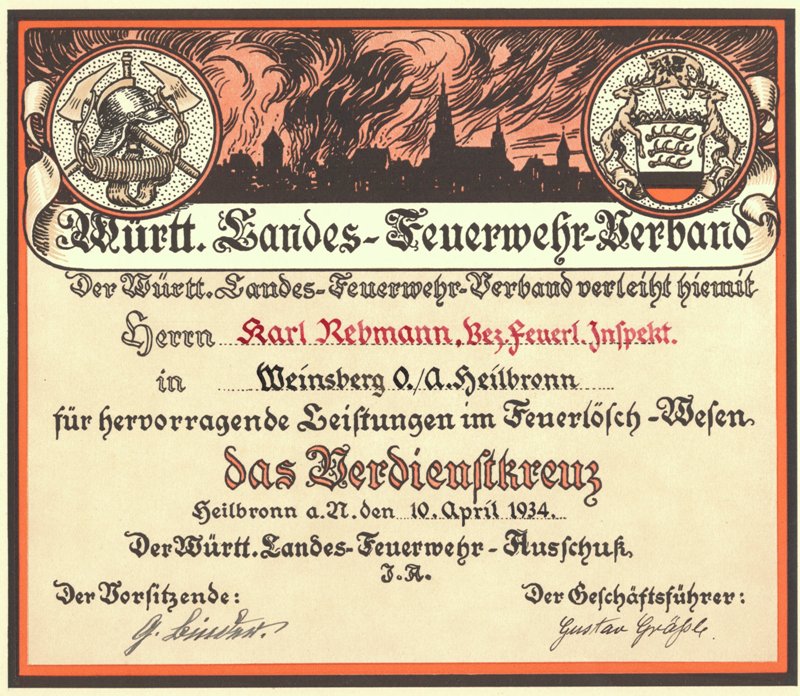 Württ. Landes-Feuerwehr-Verband
Der Württ. Landes-Feuerwehr-Verband verleiht hiemit
Herrn Karl Rebmann, Bez. Feuerl. Inspekt.
in Weinsberg O./A. Heilbronn
für hervorragende Leistungen im Feuerlösch-Wesen
das Verdienstkreuz
Heilbronn a.N. den 10. April 1934.
Der Württ. Landes-Feuerwehr-Ausschuß
I. A.
Der Vorsitzende: Der Geschäftsführer:
G. Binder. Gustav Gräßle.